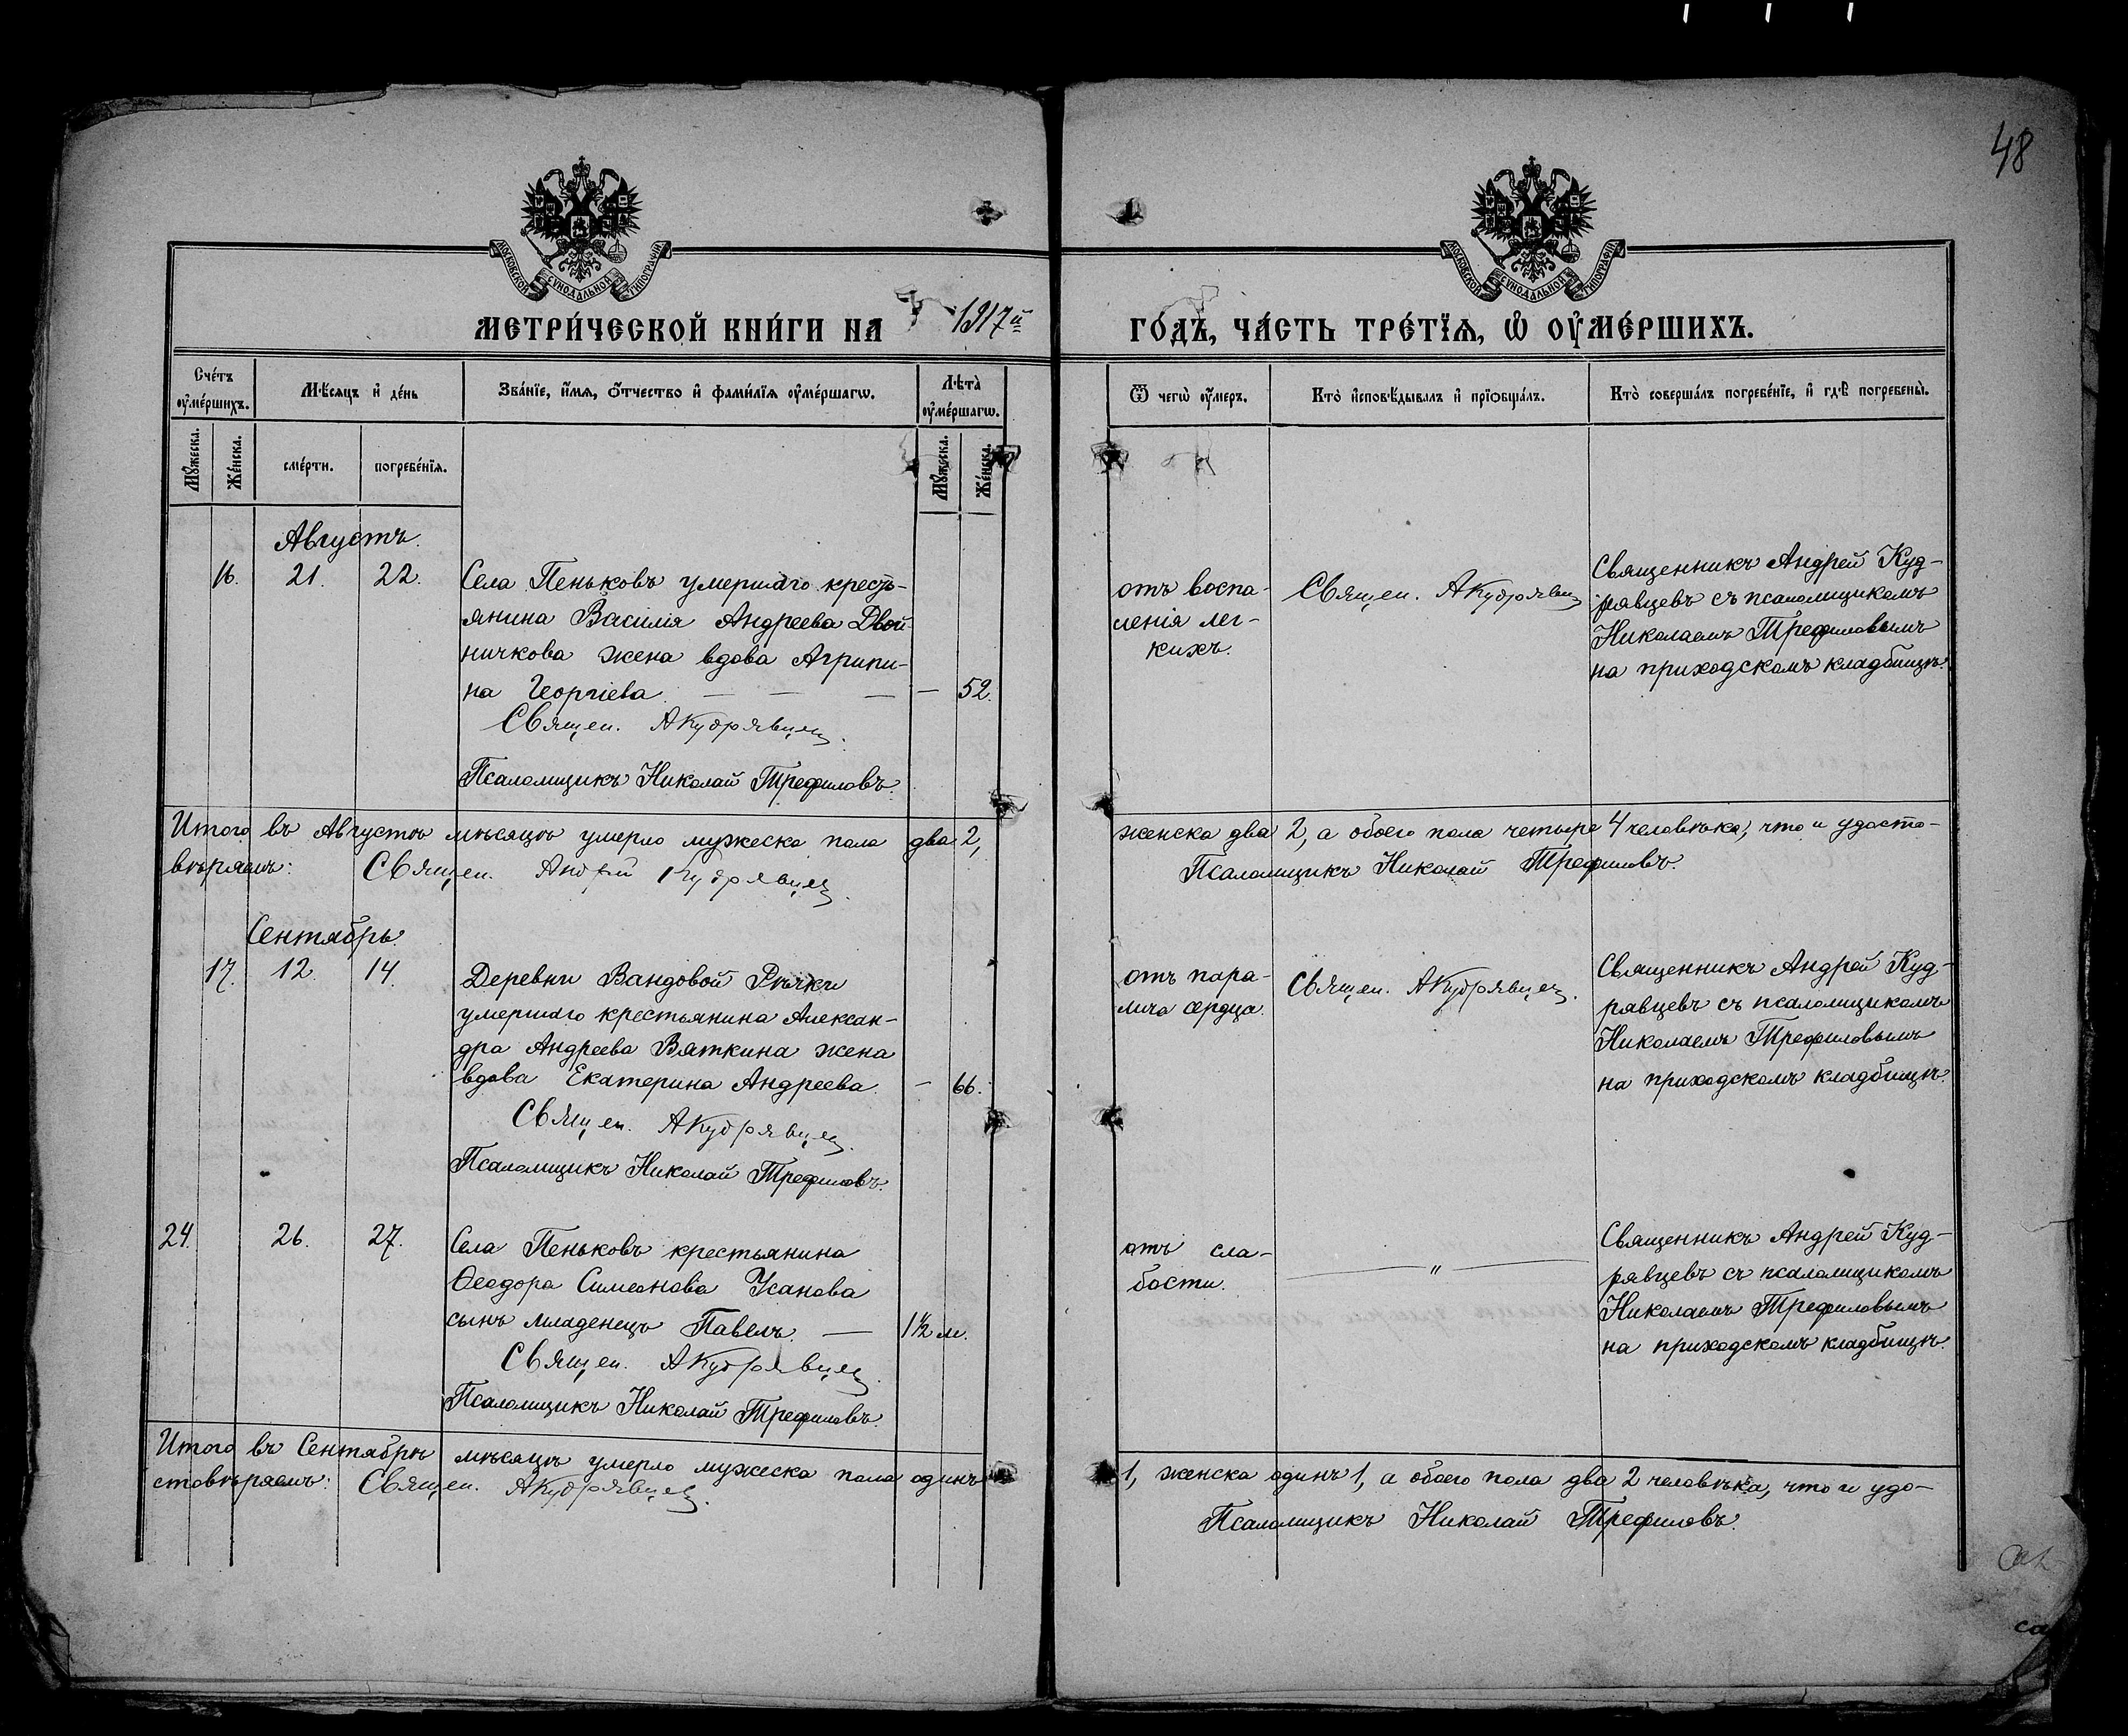 48
МОСКОВСКОЙ СѴНОДАЛЬНОЙ ТИПОГРАФІИ
МОСКОВСКОЙ СѴНОДАЛЬНОЙ ТИПОГРАФІИ
МЕТРИ́ЧЕСКОЙ КНИ́ГИ НА 1917й ГО́ДЪ, ЧА́СТЬ ТРЕ́ТЇѦ, Ѡ҆ ОУ҆МЕ́РШИХЪ.
Сче́тъ оу҆ме́ршихъ.
Мꙋ́жеска.
Же́нска.
Мѣ́сяцъ и҆ де́нь
сме́рти.
погребе́нїѧ.
Зва́нїе, и҆́мѧ, ѻ҆́тчество и҆ фами́лїѧ оу҆ме́ршагѡ.
Лѣ́та̀ оу҆ме́ршагѡ.
Мꙋ́жеска.
Же́нска.
Ѿ чегѡ̀ оу҆́меръ.
Кто̀ и҆сповѣ́дывалъ и҆ прїѻбща́лъ.
Кто̀ соверша́лъ погребе́нїе, и҆ гдѣ̀ погребены̀.
Августъ.
16. 21. 22.
Села Пеньковъ умершаго кресть-
янина Василія Андреева Двой-
ничкова жена вдова Агрипи-
на Георгіева. — — — — 52.
Священ. АКудрявцев.
Псаломщикъ Николай Трефиловъ.
отъ воспа-
ленія лег-
кихъ.
Священ. АКудрявцев
Священникъ Андрей Куд-
рявцевъ съ псаломщикомъ
Николаемъ Трефиловымъ
на приходскомъ кладбищѣ.
Итого въ Августѣ мѣсяцѣ умерло мужеска пола два 2, женска два 2, а обоего пола четыре 4 человѣка, что и удосто-
вѣряемъ: Священ. Андрей Кудрявцев. Псаломщикъ Николай Трефиловъ.
Сентябрь.
17. 12. 14.
Деревни Вандовой Рѣчки
умершаго крестьянина Алексан-
дра Андреева Вяткина жена
вдова Екатерина Андреева. — 66.
Священ. АКудрявцев.
Псаломщикъ Николай Трефиловъ.
отъ пара-
лича сердца.
Священ. АКудрявцев.
Священникъ Андрей Куд-
рявцевъ съ псаломщикомъ
Николаемъ Трефиловымъ
на приходскомъ кладбищѣ.
24. 26. 27.
Села Пеньковъ крестьянина
Ѳеодора Симеонова Усанова
сынъ младенецъ Павелъ. — 1½ м.
Священ. АКудрявцев.
Псаломщикъ Николай Трефиловъ.
отъ сла-
бости.
— " —
Священникъ Андрей Куд-
рявцевъ съ псаломщикомъ
Николаемъ Трефиловымъ
на приходскомъ кладбищѣ.
Итого въ Сентябрѣ мѣсяцѣ умерло мужеска пола одинъ 1, женска одинъ 1, а обоего пола два 2 человѣка, что и удо-
стовѣряемъ: Священ. АКудрявцев. Псаломщикъ Николай Трефиловъ.